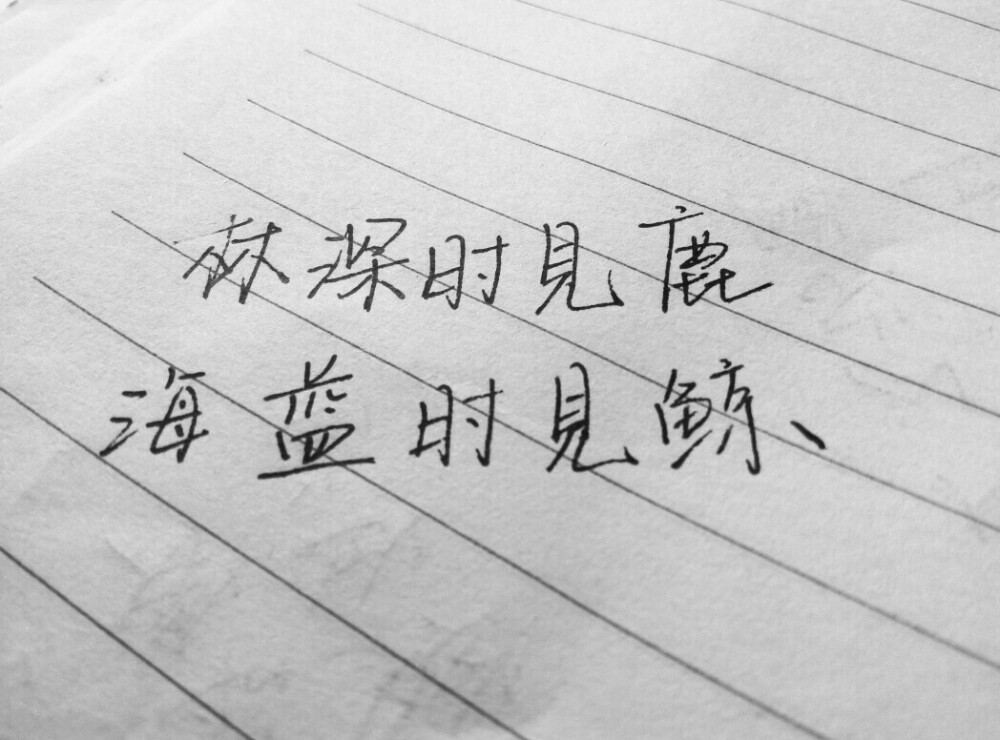 林深时见鹿
海蓝时见鲸、